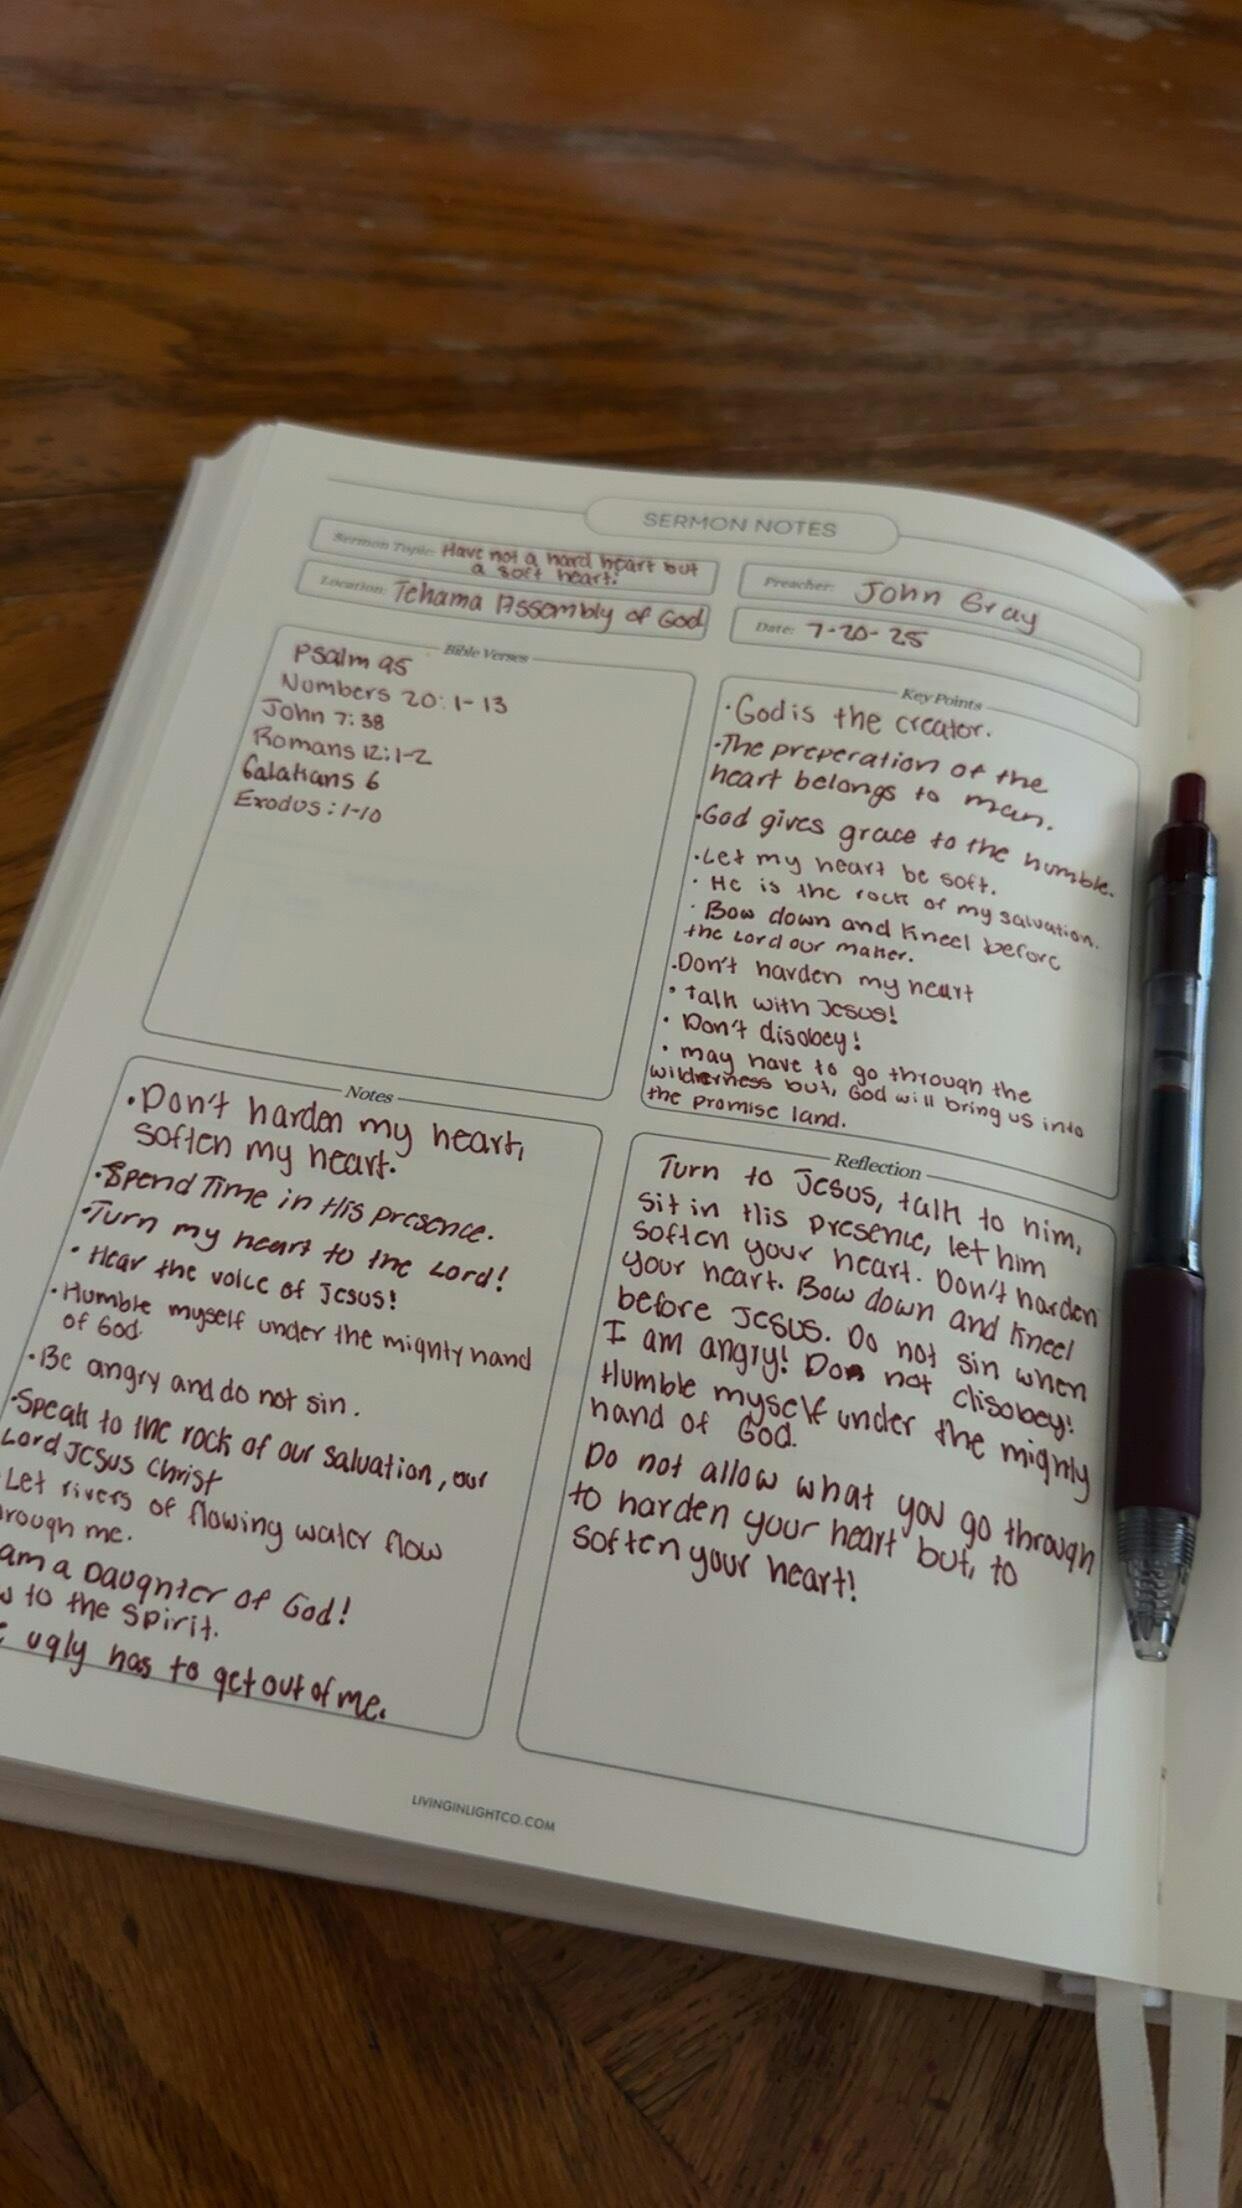 SERMON NOTES
Sermon Topic: Have not a hard heart but
a soft heart.
Preacher: John Gray
Location: Tehama Assembly of God
Date: 7-20-25
Bible Verses
Psalm 95
Numbers 20:1-13
John 7:38
Romans 12:1-2
Galatians 6
Exodus:1-10
Key Points
·God is the creator.
·The preperation of the
heart belongs to man.
·God gives grace to the humble.
·Let my heart be soft.
· He is the rock of my salvation.
· Bow down and kneel before
the Lord our maker.
·Don't harden my heart
· Talk with Jesus!
· Don't disobey!
· may have to go through the
wilderness but, God will bring us into
the promise land.
Notes
·Don't harden my heart,
soften my heart.
·Spend Time in His presence.
·Turn my heart to the Lord!
· Hear the voice of Jesus!
·Humble myself under the mighty hand
of God.
·Be angry and do not sin.
·Speak to the rock of our salvation, our
Lord Jesus Christ
Let rivers of flowing water flow
rough me.
am a Daughter of God!
to the Spirit.
ugly has to get out of me.
Reflection
Turn to Jesus, talk to him,
sit in His presence, let him
soften your heart. Don't harden
your heart. Bow down and kneel
before Jesus. Do not sin when
I am angry! Don not disobey!
Humble myself under the mighty
hand of God.
Do not allow what you go through
to harden your heart but, to
soften your heart!
LIVINGINLIGHTCO.COM